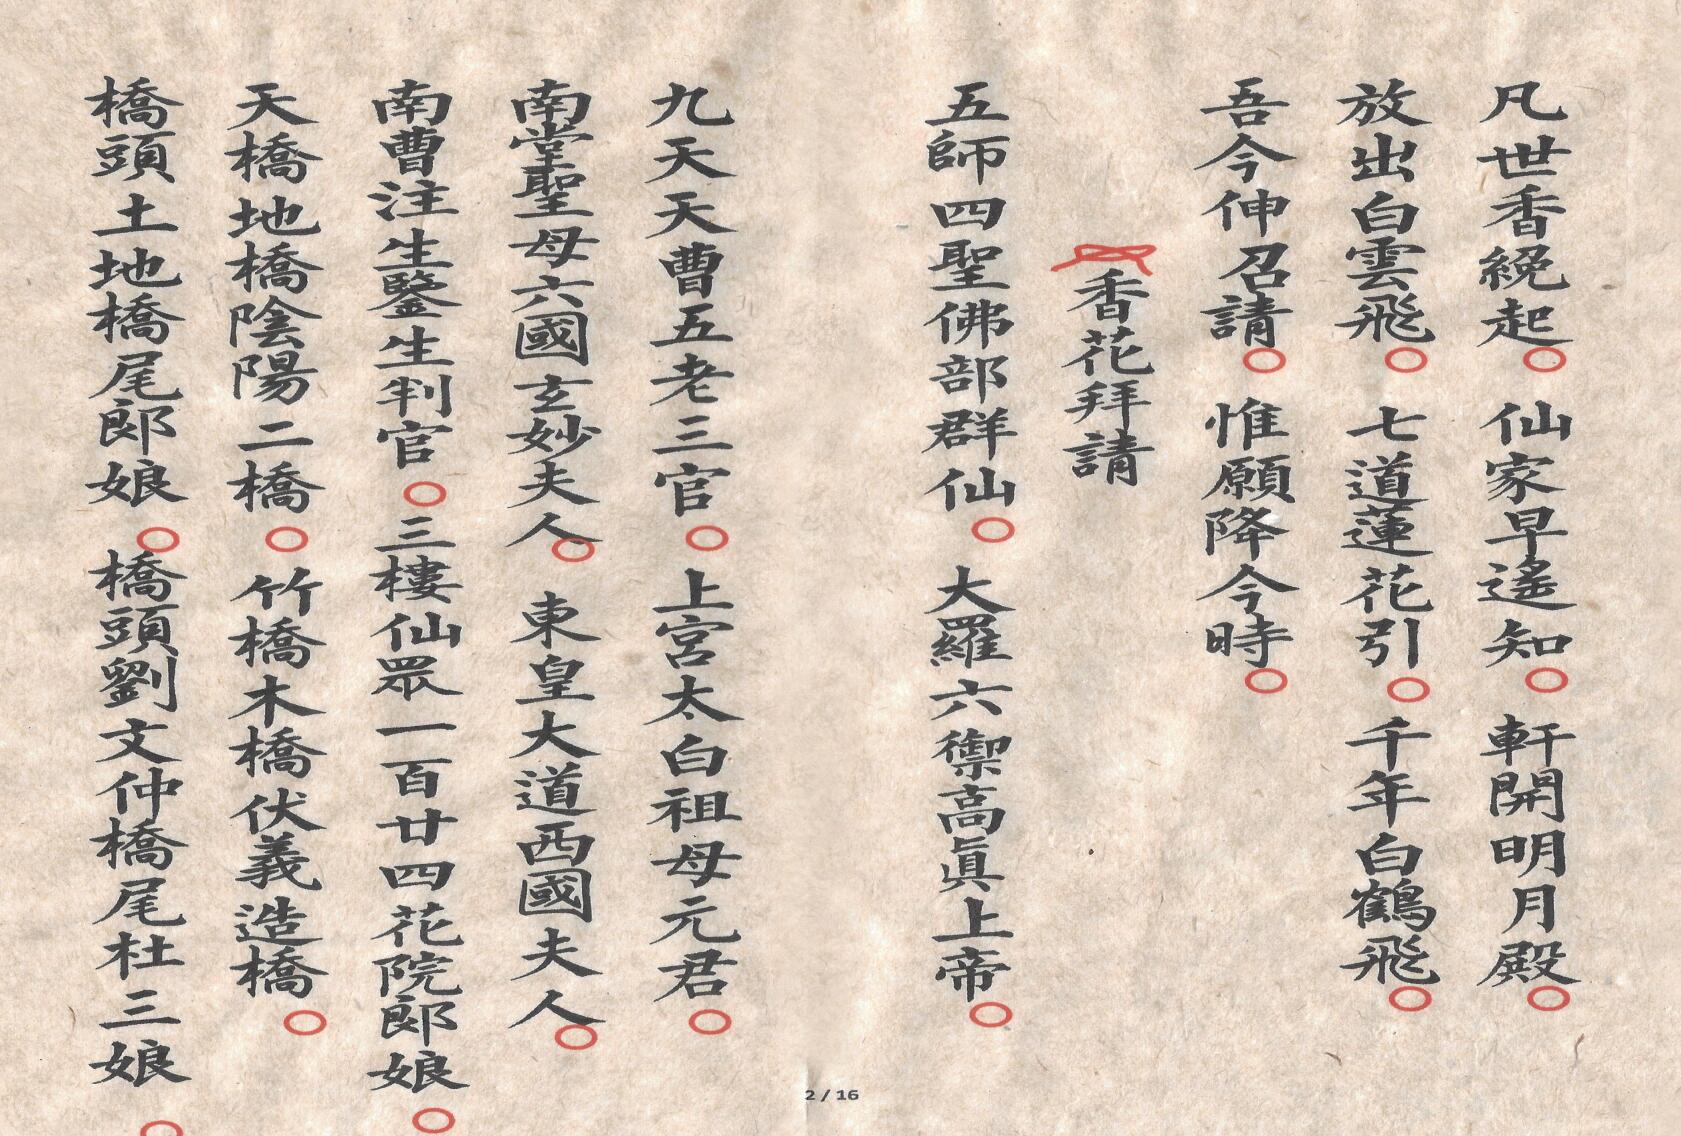 凡世香纔起○仙家早遙知○軒開明月殿○
放出白雲飛○七道蓮花引○千年白鶴飛○
吾今伸召請○惟願降今時○
香花拜請
五師四聖佛部群仙○大羅六禦高眞上帝○
九天天曹五老三官○上宮太白祖母元君○
南堂聖母六國玄妙夫人○東皇大道西國夫人○
南曹注生鑒生判官○三樓仙眾一百廿四花院郎娘○
天橋地橋陰陽二橋○竹橋木橋伏義造橋○
橋頭土地橋尾郎娘○橋頭劉文仲橋尾杜三娘○
2 / 16